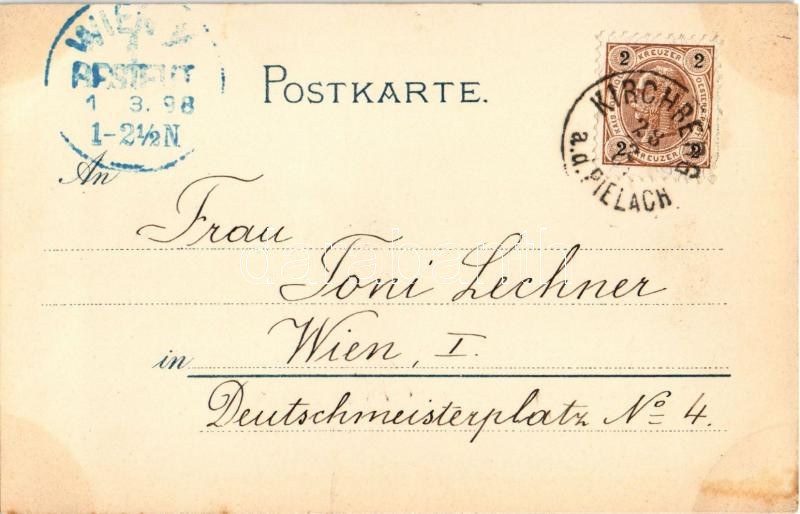 WIEN
BESTELLT
1 3.98
1-2½N
POSTKARTE.
2 KREUZER 2
2 KREUZER 2
KIRCHBERG
28
a.d. PIELACH
An
Frau
Toni Lechner
in Wien, I.
Deutschmeisterplatz No 4.